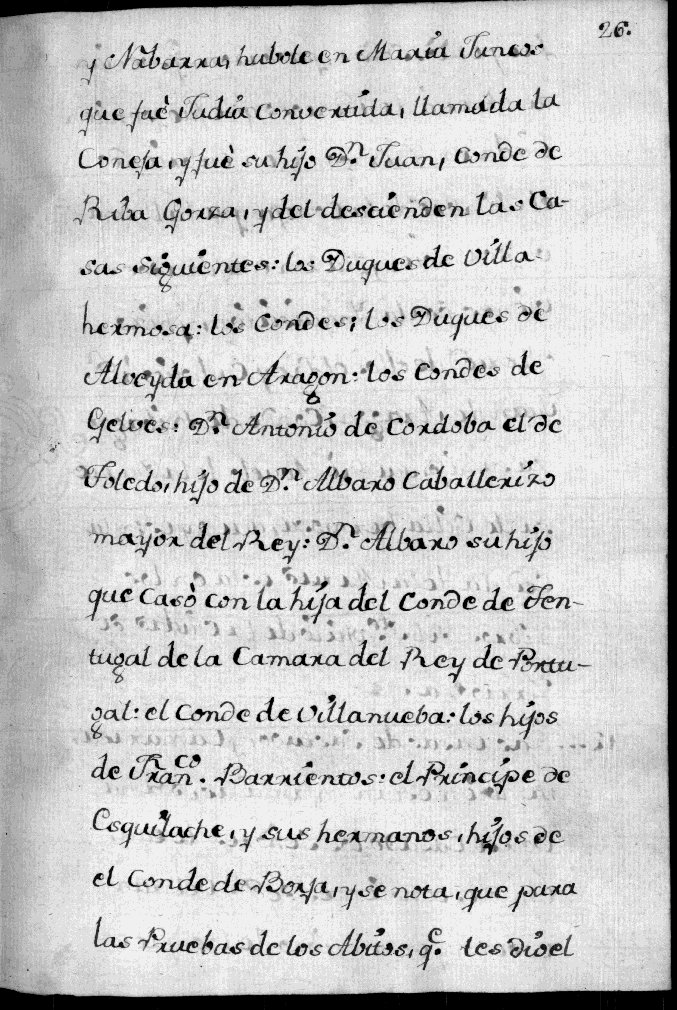 26.
y Nabarra, hubole en Maria Juncos
que fuè Judia convertida, llamada la
Coneja, y fuè su hijo Dn. Juan, Conde de
Riba Gorza, y del descienden las Ca-
sas siguientes: los Duques de Villa
hermosa: los Condes, los Duques de
Alveyda en Aragon: los Condes de
Gelves: Dn. Antonio de Cordoba el de
Toledo, hijo de Dn. Albaro Caballerizo
mayor del Rey: Dn. Albaro su hijo
que casò con la hija del Conde de Ten-
tugal de la Camara del Rey de Portu-
gal: el Conde de Villanueba: los hijos
de Franco. Barrientos: el Principe de
Esquilache, y sus hermanos, hijos de
el Conde de Borja, y se nota, que para
las Pruebas de los Abitos, qe. les dio el